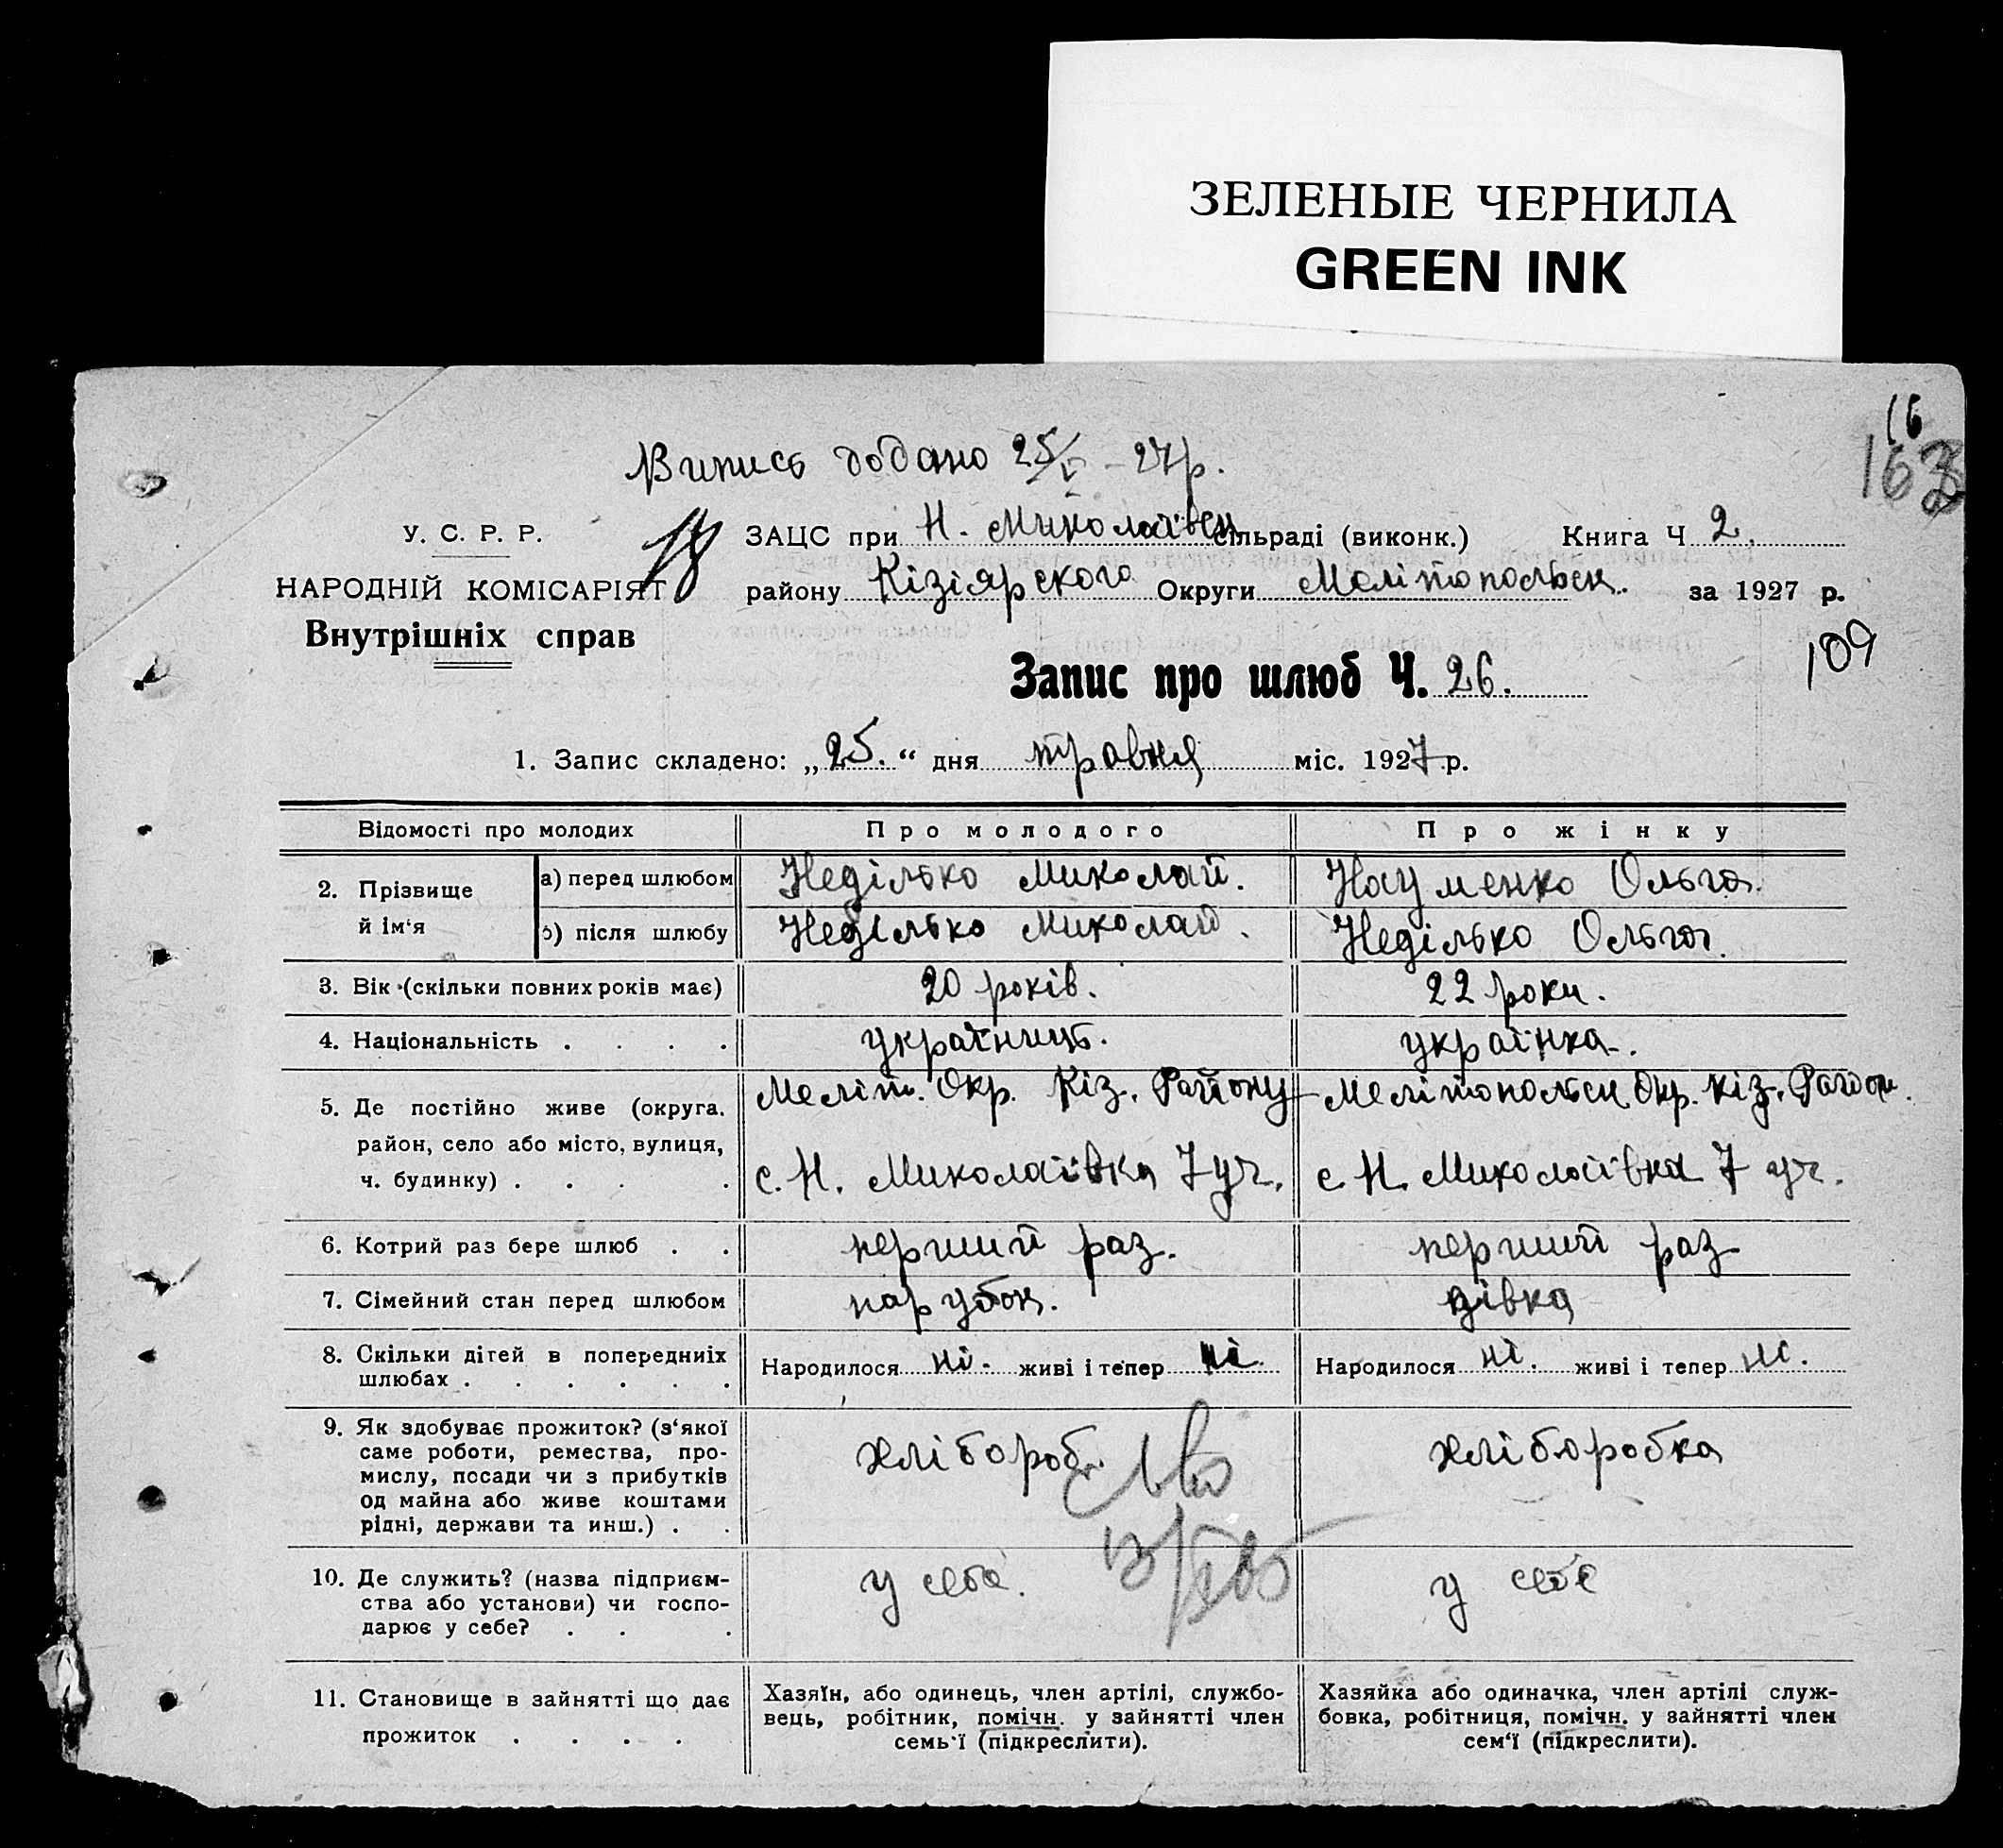 ЗЕЛЕНЫЕ ЧЕРНИЛА
GREEN INK
16
163
Випись додано 25/V – 27 р.
У. С. Р. Р.
18
ЗАЦС при Н. Миколаївськ сільраді (виконк.) Книга Ч 2.
НАРОДНІЙ КОМІСАРІЯТ
району Кізіярского Округи Мелітопольськ. за 1927 р.
Внутрішніх справ
109
Запис про шлюб Ч. 26.
1. Запис складено: „25.“ дня травня міс. 1927 р.
Відомості про молодих Про молодого Про жінку
2. Прізвище й ім‘я
а) перед шлюбом Неділько Миколай. Науменко Ольга.
б) після шлюбу Неділько Миколай. Неділько Ольга.
3. Вік (скільки повних років має) 20 років. 22 роки.
4. Національність . . . . україниць. українка.
5. Де постійно живе (округа, район, село або місто, вулиця, ч. будинку) . . . .
Меліт. Окр. Кіз. Району
с. Н. Миколаївка 7 уч.
Мелітопольськ Окр. Кіз. Район.
с. Н. Миколаївка 7 уч.
6. Котрий раз бере шлюб . . перший раз. перший раз
7. Сімейний стан перед шлюбом парубок. дівка
8. Скільки дітей в попередниіх шлюбах . . . . . .
Народилося ні. живі і тепер ні.
Народилося ні. живі і тепер ні.
9. Як здобуває прожиток? (з‘якої
саме роботи, ремества, про-
мислу, посади чи з прибутків
од майна або живе коштами
рідні, держави та инш.) . .
хлібороб. хліборобка
10. Де служить? (назва підприєм-
ства або установи) чи госпо-
дарює у себе? . . .
у себе. у себе
11. Становище в зайнятті що дає
прожиток . . . .
Хазяїн, або одинець, член артілі, службо-
вець, робітник, помічн. у зайнятті член
семь‘ї (підкреслити).
Хазяйка або одиначка, член артілі служ-
бовка, робітниця, помічн. у зайнятті член
сем‘ї (підкреслити).